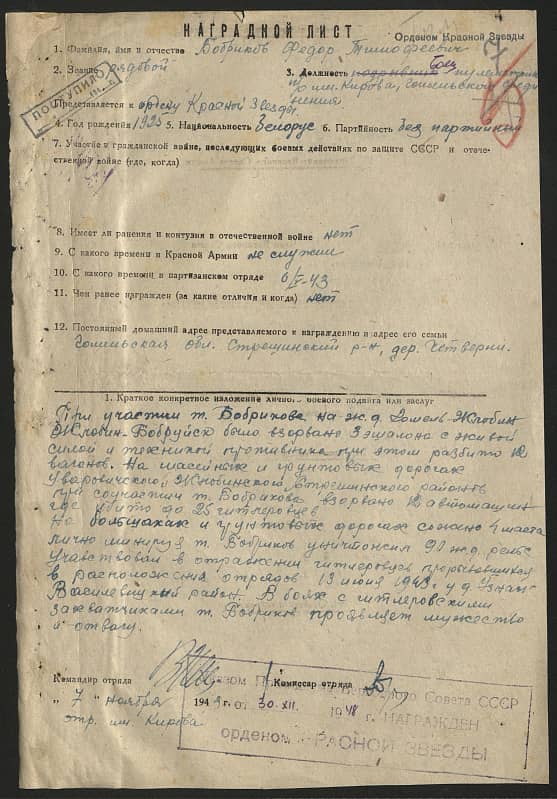 НАГРАДНОЙ ЛИСТ
Орденом Красной Звезды
1. Фамилия, имя и отчество Бобриков Федор Тимофеевич
2. Звание рядовой 3. Должность подрывник боец
п/о им. Кирова, Гомельского соеди
нения
ПОСТУПИЛО
Представляется к ордену Красной Звезды
4. Год рождения 1925 5. Национальность Белорус 6. Партийность без партийный
7. Участие в гражданской войне, последующих боевых действиях по защите СССР и отече-
ственной войне (где, когда)
8. Имеет ли ранения и контузии в отечественной войне нет
9. С какого времени в Красной Армии не служил
10. С какого времени в партизанском отряде 6/V-43
11. Чем ранее награжден (за какие отличия и когда) нет
12. Постоянный домашний адрес представляемого к награждению и адрес его семьи
Гомельская обл. Стрешинский р-н, дер. Четверня.
1. Краткое конкретное изложение личного боевого подвига или заслуг
При участии т. Бобрикова на ж.д. Гомель-Жлобин
Жлобин-Бобруйск было взорвано 3 эшалона с живой
силой и техникой противника при этом разбито 12
вагонов. На шассейных и грунтовых дорогах
Уваровичского Жлобинского Стрешинского районов
при соучастии т. Бобрикова взорвано 12 автомашин
где убито до 25 гитлеровцев
На большаках и грунтовых дорогах сожжено 4 моста
лично минируя т. Бобриков уничтожил 90 ж.д. рельс
Учавствовал в отражении гитлеровцев прорывавшихся
в расположения отрядов 13 июня 1943г у д. Узнаж
Василевицкий район. В боях с гитлеровскими
захватчиками т. Бобриков проявляет мужество
и отвагу.
Командир отряда Комиссар отряда
"7" ноября 1943г.
отр. им. Кирова
Указом Президиума Верховного Совета СССР
от 30.XII. 1948 г. НАГРАЖДЕН
орденом КРАСНОЙ ЗВЕЗДЫ